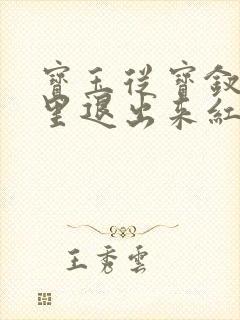 寶玉從寶釵
里退出來紅
王秀雲